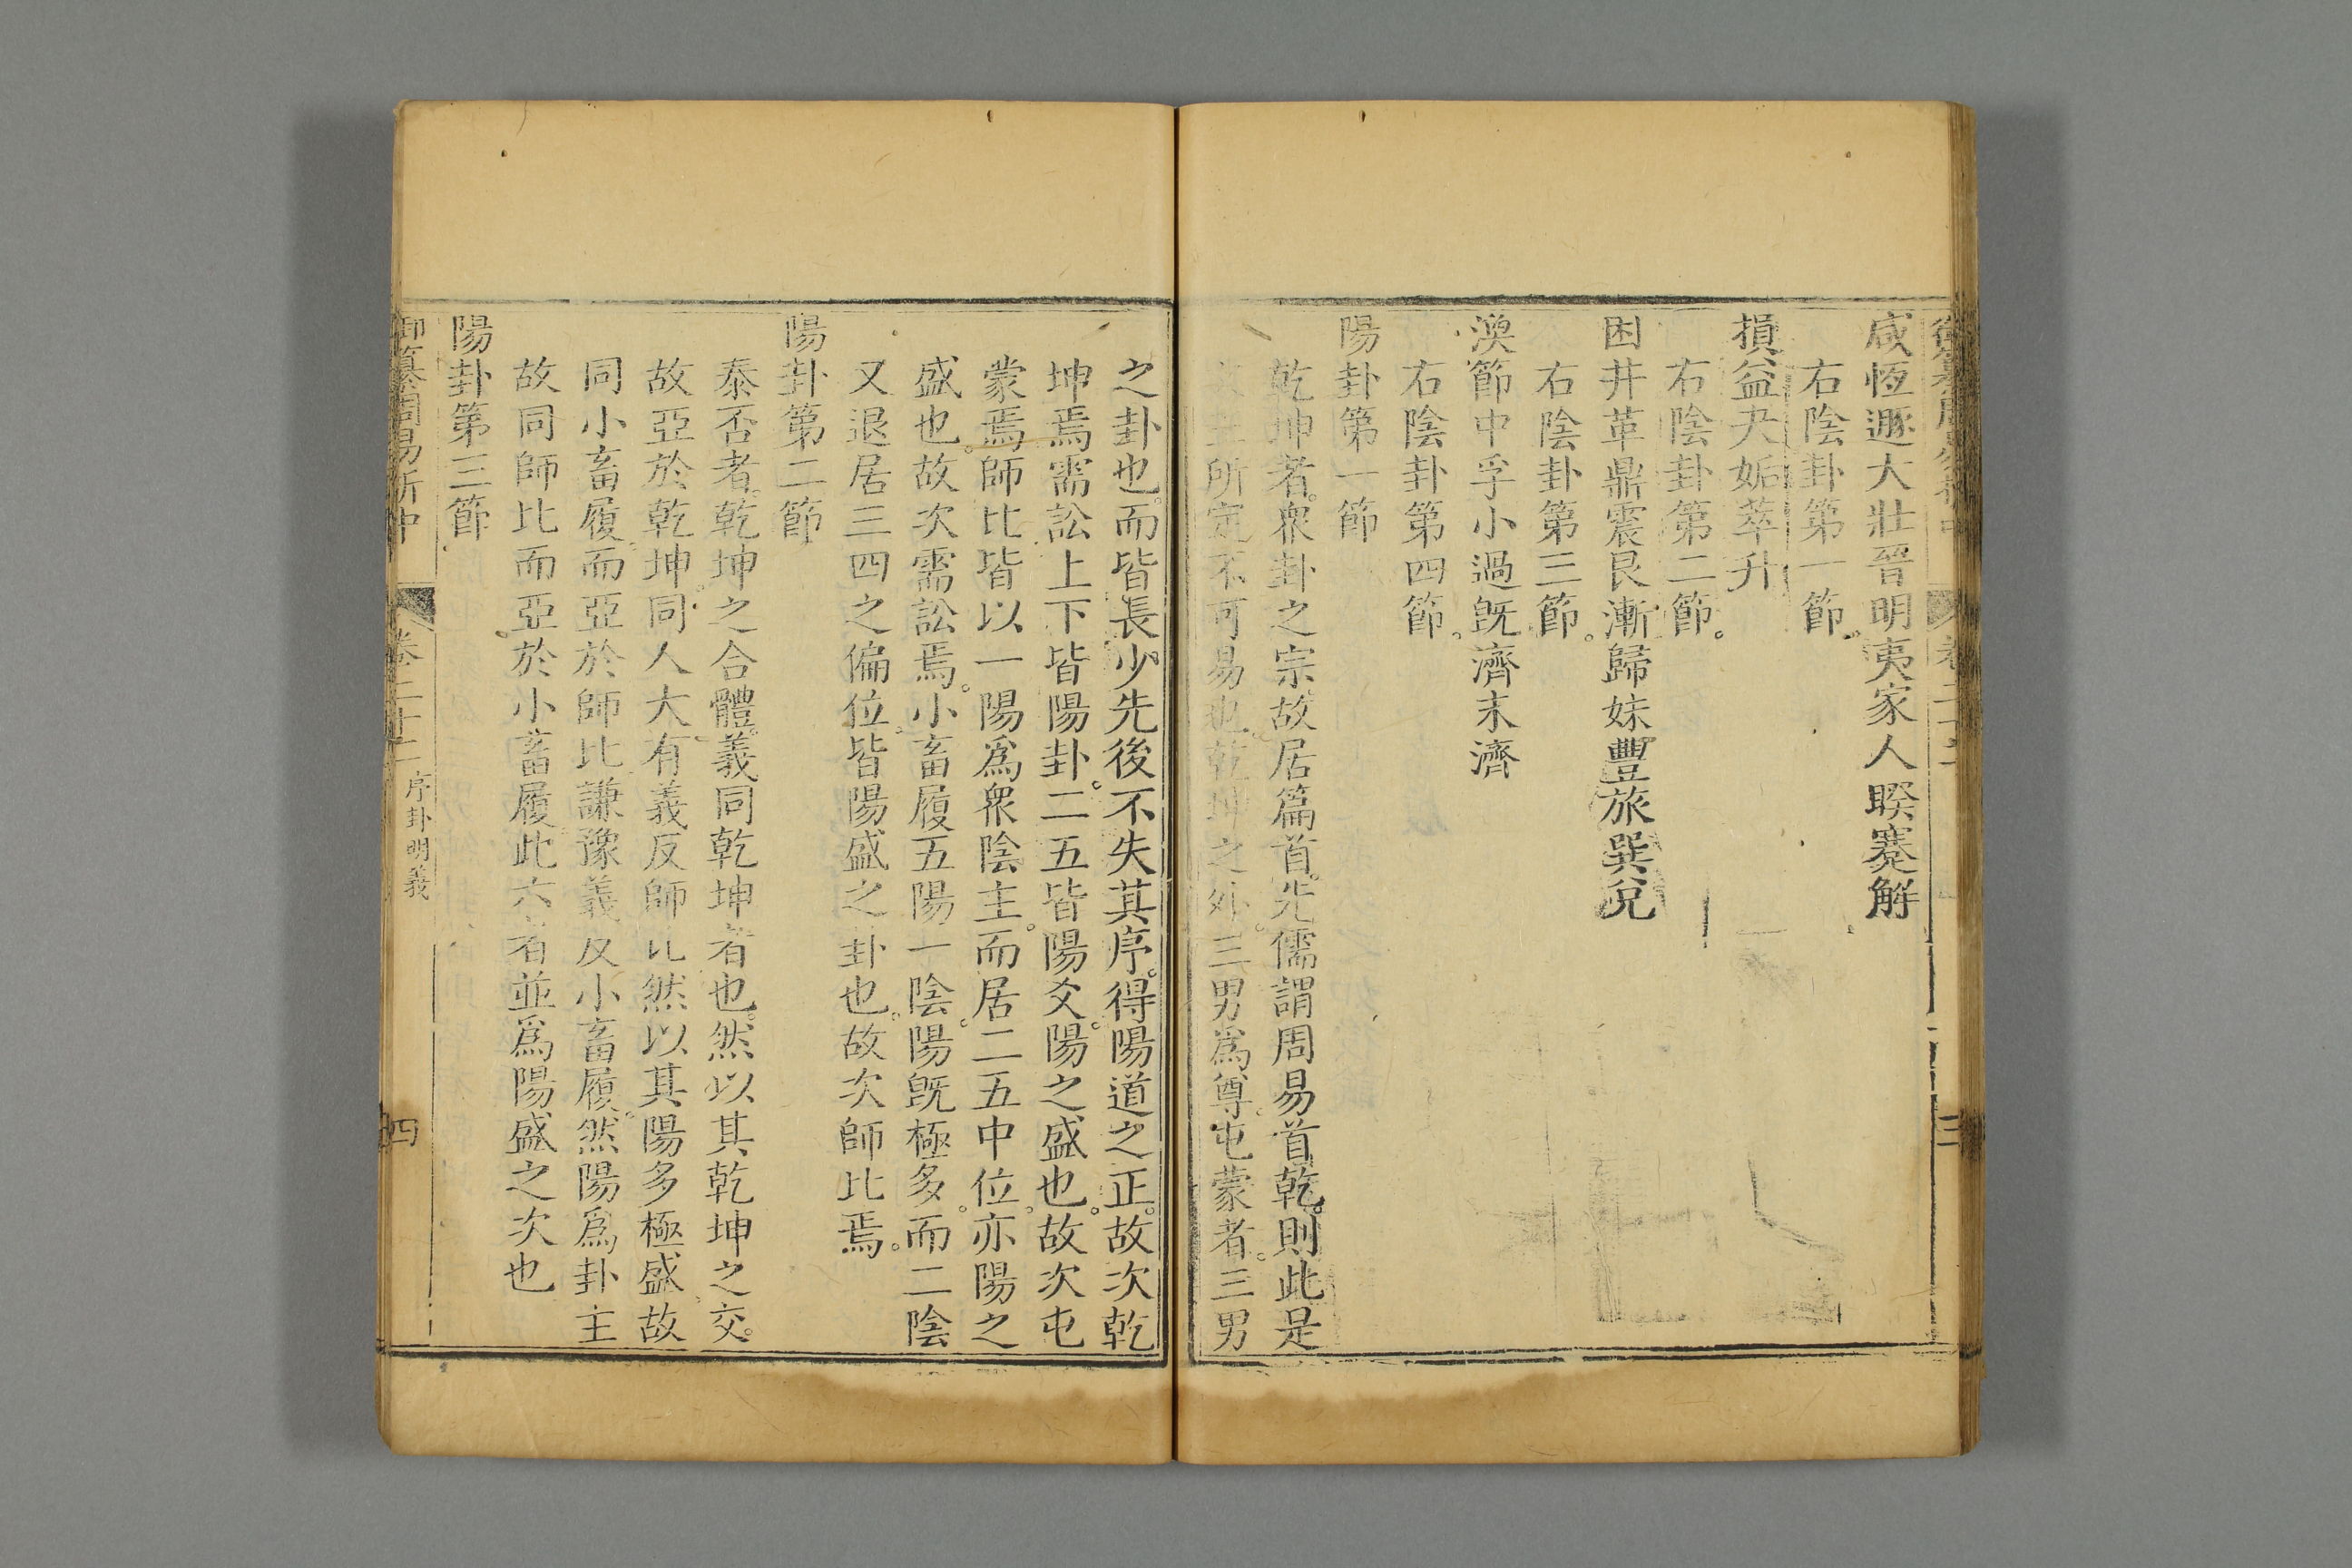 咸恆遯大壯晉明夷家人睽蹇解
右陰卦第一節。
損益夬姤萃升
右陰卦第二節。
困井革鼎震艮漸歸妹豐旅巽兌
右陰卦第三節。
渙節中孚小過旣濟未濟
右陰卦第四節。
陽卦第一節
乾坤者。衆卦之宗。故居篇首。先儒謂周易首乾。則此是
所定不可易也。乾坤之外。三男爲尊。屯蒙者。三男
之卦也。而皆長少先後不失其序。得陽道之正。故次乾
坤焉。需訟上下皆陽卦。二五皆陽爻。陽之盛也。故次屯
蒙焉。師比皆以一陽爲衆陰主。而居二五中位。亦陽之
盛也。故次需訟焉。小畜履五陽一陰。陽旣極多。而二陰
又退居三四之偏位。皆陽盛之卦也。故次師比焉。
陽卦第二節
泰否者。乾坤之合體。義同乾坤者也。然以其乾坤之交。
故亞於乾坤。同人大有義反師比。然以其陽多極盛。故
同小畜履。而亞於師比。謙豫義反小畜履。然陽爲卦主
故同師比。而亞於小畜履。此六者並爲陽盛之次也
陽卦第三節
御纂周易折中 卷二十二 序卦明義 四